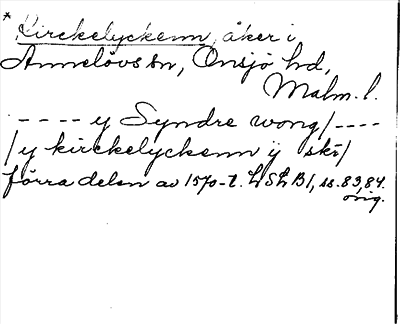 * Kirckelyckenn, åker i
Annelövs sn, Onsjö hd,
Malm. l.
---- y Syndre wong/----
/y kirckelyckenn ÿ skí/
förra delen av 1570-t. LSLB1, ss. 83, 84.
orig.